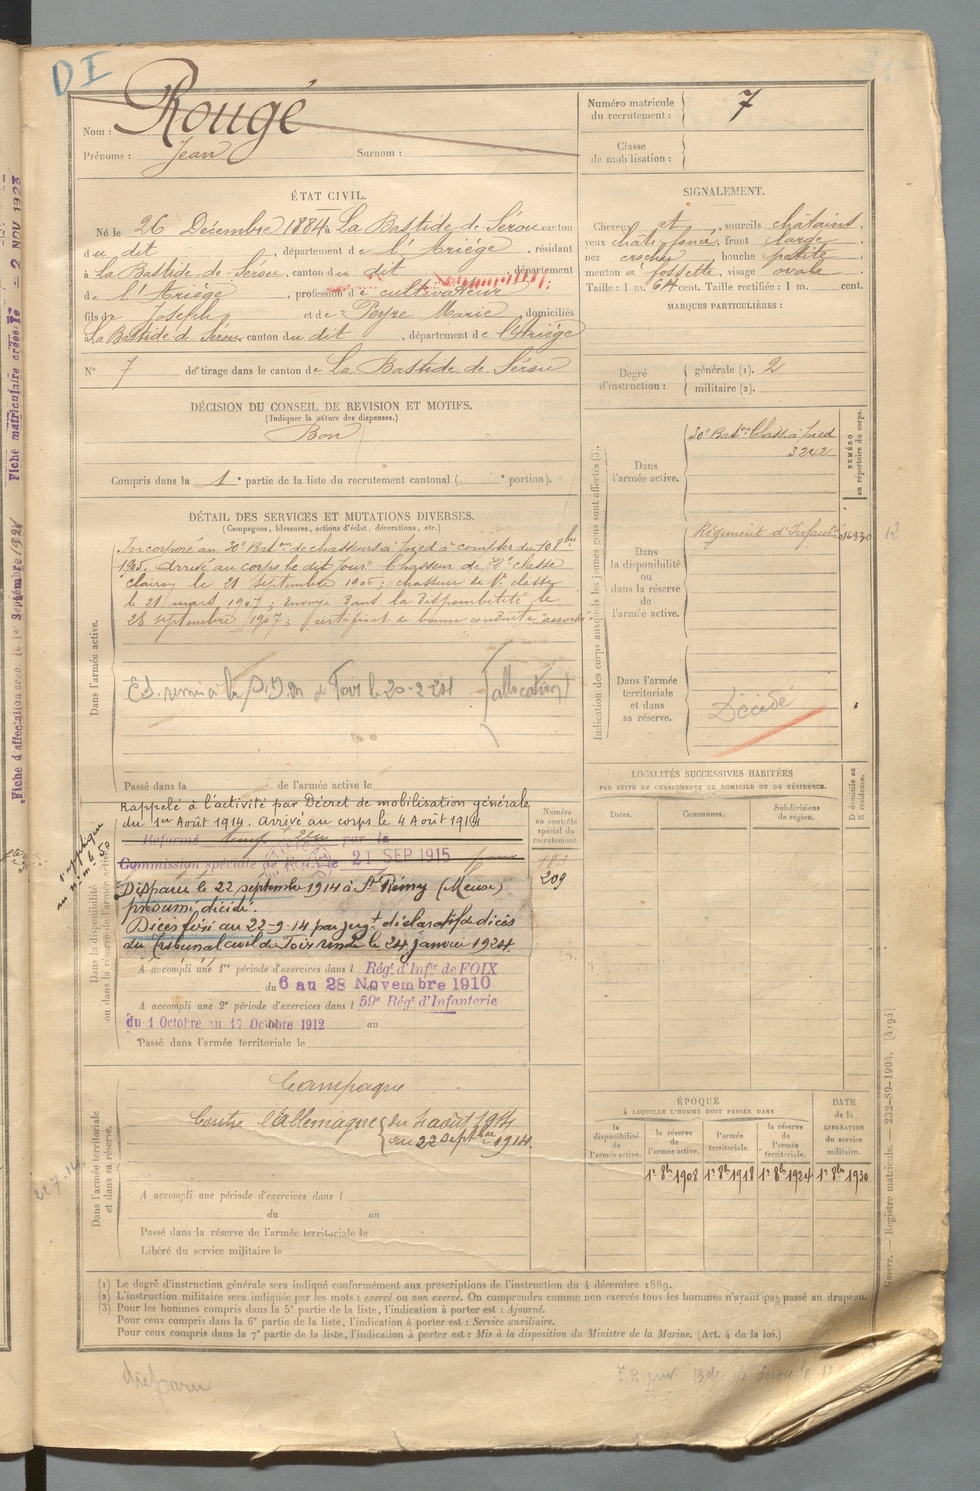 DI
Nom : Rougé
Prénoms : Jean Surnom :
Numéro matricule du recrutement : 7
Classe de mobilisation :
ÉTAT CIVIL.
Né le 26 Décembre 1884 à La Bastide de Sérou canton
du dit, département de l'Ariège, résidant
à La Bastide de Sérou, canton du dit, département
de l'Ariège, profession de cultivateur
fils de Joseph et de Peyre Marie domiciliés
à La Bastide de Sérou canton du dit, département de l'Ariège
N° 7 de tirage dans le canton de La Bastide de Sérou
SIGNALEMENT.
Cheveux et, sourcils châtains
yeux chât. foncé, front large
nez crochu, bouche petite
menton à fossette, visage ovale
Taille : 1 m. 64 cent. Taille rectifiée : 1 m. cent.
MARQUES PARTICULIÈRES :
Degré d'instruction : générale (1). 2
militaire (2).
DÉCISION DU CONSEIL DE REVISION ET MOTIFS.
(Indiquer la nature des dispenses.)
Bon
Compris dans la 1e partie de la liste du recrutement cantonal ( e portion).
DÉTAIL DES SERVICES ET MUTATIONS DIVERSES.
(Campagnes, blessures, actions d'éclat, décorations, etc.)
Dans l'armée active.
Incorporé au 30e Baton de chasseurs à pied à compter du 10 8bre
1905. Arrivé au corps le dit jour. Chasseur de 2e classe
clairon le 21 septembre 1906; chasseur de 1e classe
le 21 mars 1907; Envoyé dans la disponibilité le
28 septembre 1907; Certificat de bonne conduite accordé
le 20-2-24 (allocation)
Passé dans la de l'armée active le
Dans la disponibilité ou dans la réserve de l'armée active.
Rappelé à l'activité par Décret de mobilisation générale
du 1er Août 1914. Arrivé au corps le 4 Août 1914
Commission spéciale de 21 SEP 1915
Disparu le 22 septembre 1914 à St Rémy (Meuse)
présumé décédé.
Décès fixé au 22-9-14 par jugt déclaratif de décès
du Tribunal civil de Foix rendu le 24 janvier 1924.
A accompli une 1re période d'exercices dans l Régt d'Infie de FOIX
du 6 au 28 Novembre 1910
A accompli une 2e période d'exercices dans l 59e Régt d'Infanterie
du 1 Octobre au 17 Octobre 1912 au
Passé dans l'armée territoriale le
Numéro au contrôle spécial du recrutement.
209
Dans l'armée territoriale et dans sa réserve.
Campagne
Contre l'Allemagne du 4 août 1914
au 22 septbre 1914
A accompli une période d'exercices dans l
du au
Passé dans la réserve de l'armée territoriale le
Libéré du service militaire le
Indication des corps auxquels les jeunes gens sont affectés (3).
NUMÉRO au répertoire du corps.
Dans l'armée active.
30e Baton Chass. à pied
3242
Dans la disponibilité ou dans la réserve de l'armée active.
Régiment d'Infanterie
12
Dans l'armée territoriale et dans sa réserve.
Décédé
LOCALITÉS SUCCESSIVES HABITÉES
PAR SUITE DE CHANGEMENTS DE DOMICILE OU DE RÉSIDENCE.
Dates. Communes. Subdivisions de région.
D domicile ou R résidence.
ÉPOQUE
À LAQUELLE L'HOMME DOIT PASSER DANS
la disponibilité de l'armée active.
la réserve de l'armée active. 1er 8bre 1908
l'armée territoriale. 1er 8bre 1918
la réserve de l'armée territoriale. 1er 8bre 1924
DATE de la LIBÉRATION du service militaire. 1er 8bre 1930
(1) Le degré d'instruction générale sera indiqué conformément aux prescriptions de l'instruction du 4 décembre 1889.
(2) L'instruction militaire sera indiquée par les mots : exercé ou non exercé. On comprendra comme non exercés tous les hommes n'ayant pas passé au drapeau.
(3) Pour les hommes compris dans la 5e partie de la liste, l'indication à porter est : Ajourné.
Pour ceux compris dans la 6e partie de la liste, l'indication à porter est : Service auxiliaire.
Pour ceux compris dans la 7e partie de la liste, l'indication à porter est : Mis à la disposition du Ministre de la Marine. (Art. 4 de la loi.)
disparu
Registre matricule. — 232-89-1904. [4194]
Fiche matriculaire créée le 2 NOV 1923
Fiche d'affectation créée le Septembre 1921